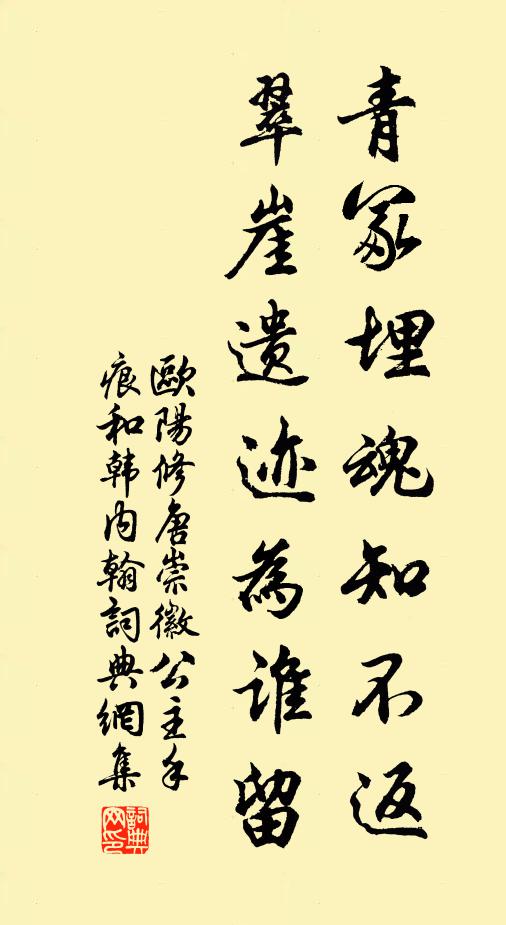 青冢埋魂知不返
翠崖遗迹為誰留
歐陽修唐崇徽公主手
痕和韩内翰詞典網集
詞典網印